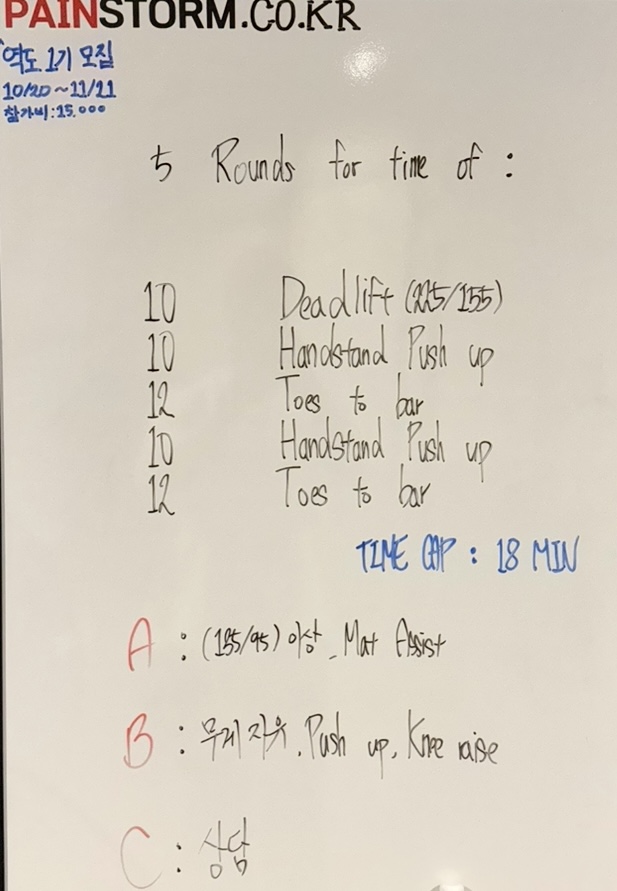 PAINSTORM.CO.KR
역도 1기 모집
10/20~11/11
참가비:15.000
5 Rounds for time of :
10 Deadlift (225/155)
10 Handstand Push up
12 Toes to bar
10 Handstand Push up
12 Toes to bar
TIME CAP : 18 MIN
A : (135/95) 이상, Mat Assist
B : 무게 자유, Push up, Knee raise
C : 상담